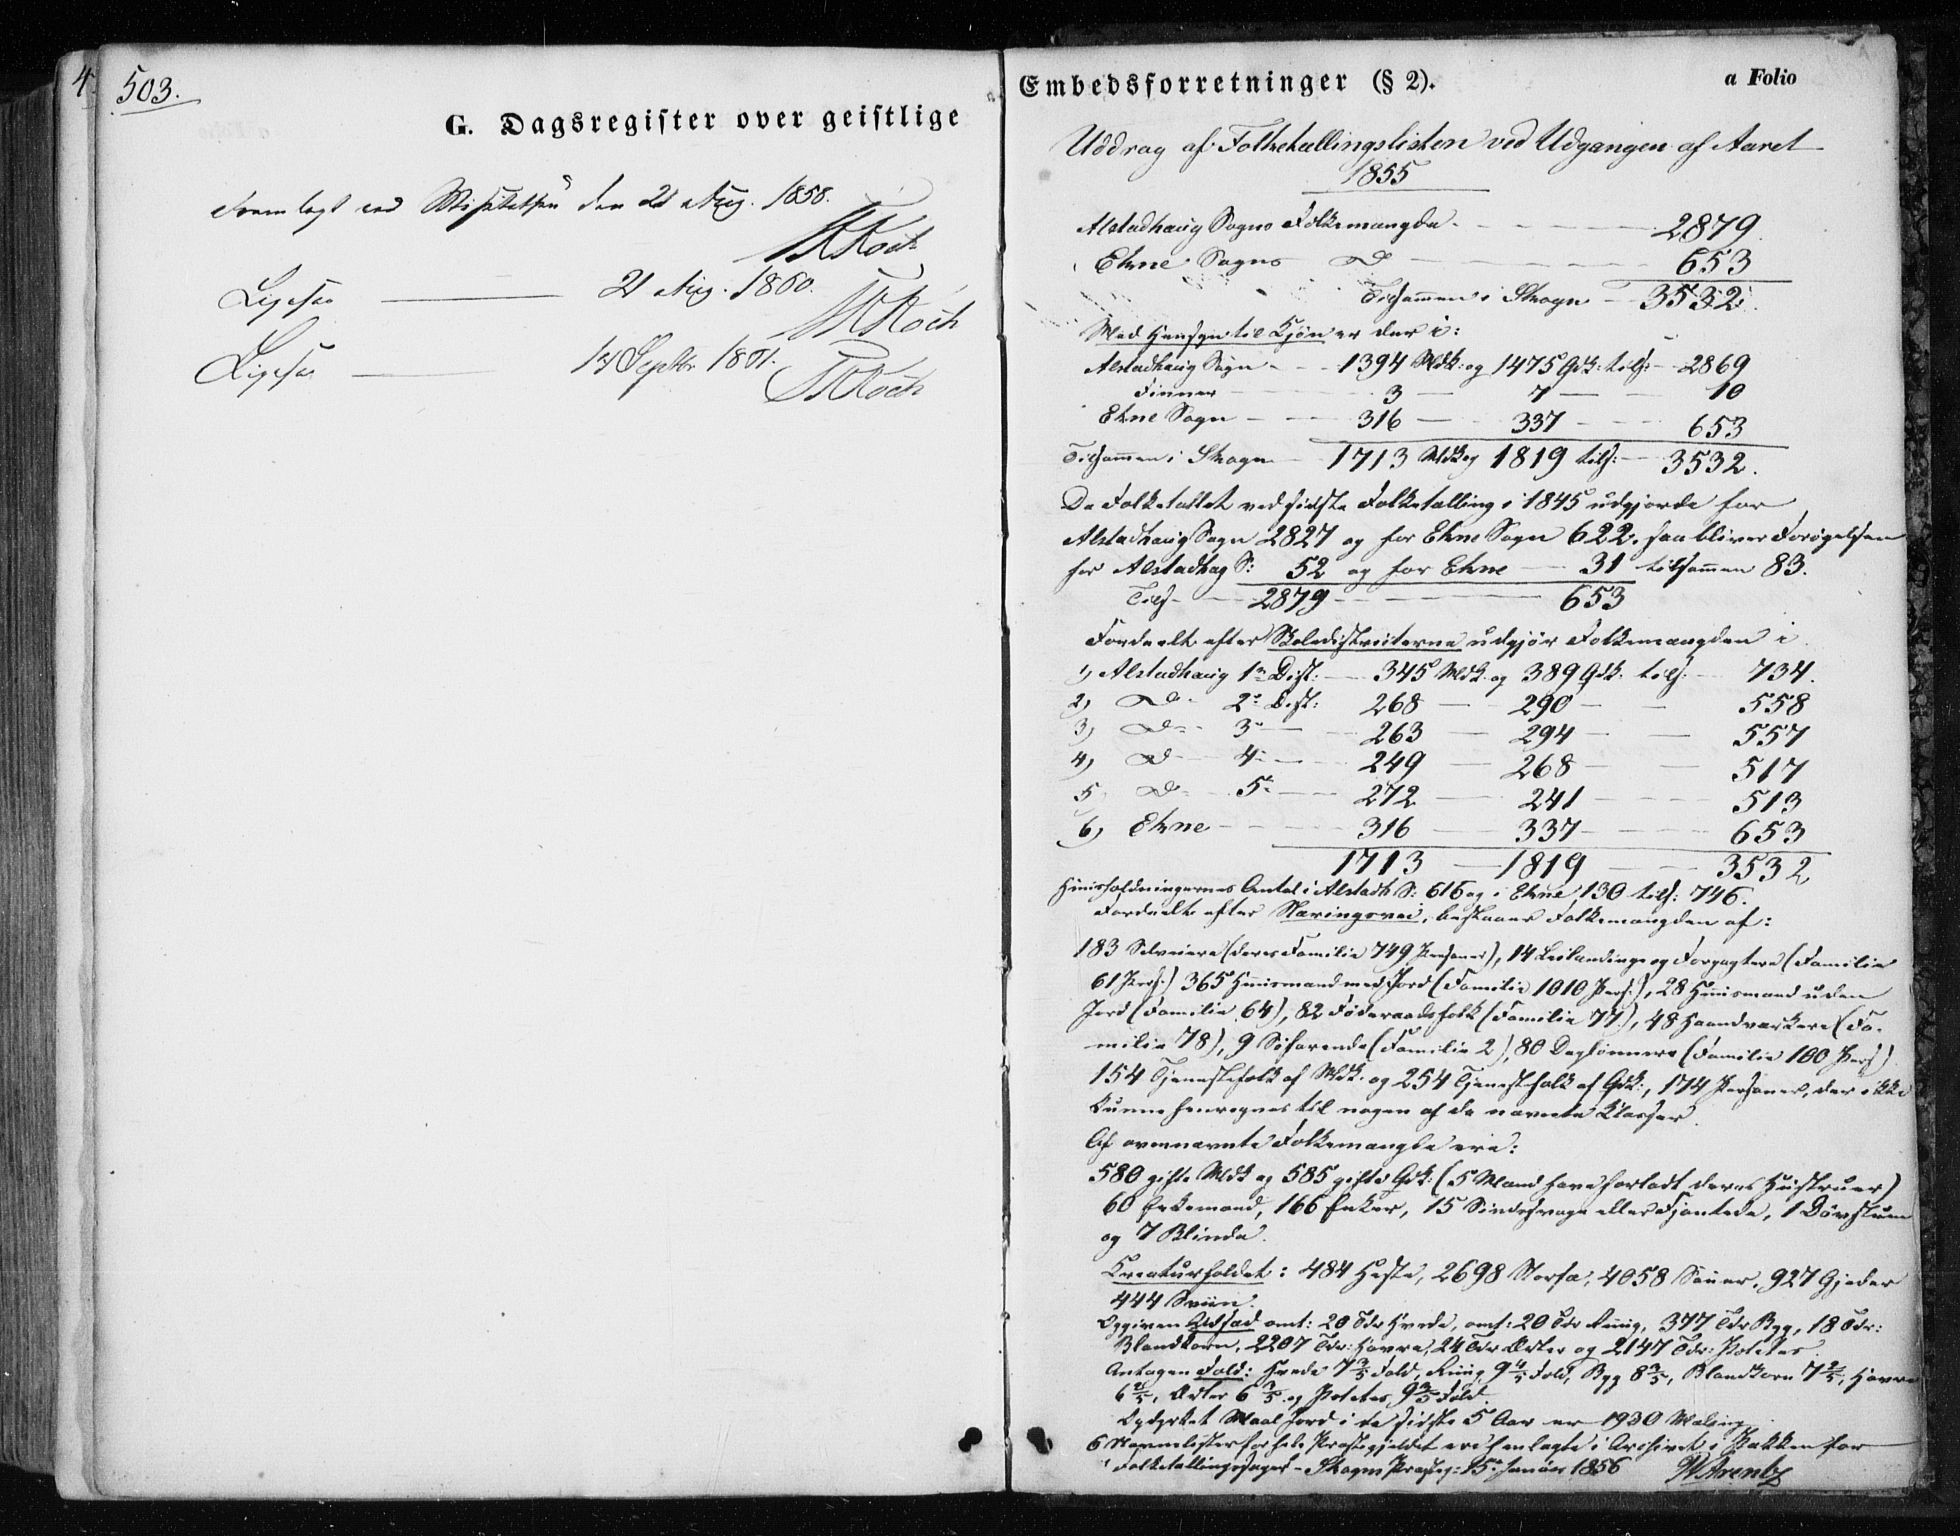 4
503.
G. Dagsregister over geistlige
Fremlagt ved Visitatsen den 21 Aug. 1858.
Koch
Ligesaa — 21 Aug. 1860.
Koch
Ligesaa — Septbr
Koch
Embedsforretninger (§ 2).
a Folio
Uddrag af Folketællingslisten ved Udgangen af Aaret
1855
Alstadhaug Sogns Folkemængde - 2879
Ekne Sogns D - 653
Tilsammen i Skogn - 3532.
Med Hensyn til Kjøn er der i:
Alstadhaug Sogn - 1394 Mdk: og 1475 Qdk: tils: - 2869
Finner 3 — 7 — 10
Ekne Sogn - 316 — 337 - 653
Tilsammen i Skogn - 1713 Mdk og 1819 tils: - 3532.
Da Folketallet ved sidste Folketælling i 1845 udgjorde for
Alstadhaug Sogn 2827 og for Ekne Sogn 622, saa bliver Forøgelsen
for Alstadhag S: 52 og for Ekne — 31 tilsammen 83.
Tils - 2879 - 653
Fordeelt efter Skoledistricterne udgjør Folkemængden i
1, Alstadhaug 1e Dist: — 345 Mdk. og 389 Qdk. tils: - 734.
2, D - 2e Dist: 268 — 290 - 558
3, D - 3e — 263 — 294 - 557
4, D - 4e — 249 — 268 - 517
5 D - 5e — 272 — 241 - 513
6, Ekne - 316 — 337 - 653
1713 — 1819 — 3532
Huusholdningernes Antal i Alstadh S: 616 og i Ekne 130 tils: 746.
Fordeelt efter Næringsvei, bestaaer Folkemængden af:
183 Selveiere (deres Familie 749 Personer), 14 Leilændinge og Forpagtere (Familie
61 Pers:) 365 Huusmænd med Jord (Familie 1010 Pers:), 28 Huusmænd uden
Jord (Familie 64), 82 Føderaadsfolk (Familie 77), 48 Haandværkere (Fa-
milie 78), 9 Søfarende (Familie 2), 80 Daglønnere (Familie 100 Pers)
154 Tjenestefolk af Mdk. og 254 Tjenestefolk af Qdk:, 174 Personer, der ikke
kunne henregnes til nogen af de nævnte Klasser.
Af ovennævnte Folkemængde ere:
580 gifte Mdk og 585 gifte Qdk: (5 Mænd have forladt deres Hustruer)
60 Enkemænd, 166 Enker, 15 Sindssvage eller Fjantede, 1 Døvstum
og 7 Blinde.
Kreaturholdet: 484 Heste, 2698 Storfæ, 4058 Sauer, 927 Gjeder
444 Sviin.
Opgiven Udsæd omt: 20 Tdr Hvede, omt: 20 Tdr Rug, 377 Tdr Byg, 18 Tdr:
Blandkorn, 2207 Tdr: Havre, 24 Tdr Erter og 2147 Tdr: Potetes.
Antagen Fold: Hvede 7 3/5 Fold, Rug 9 4/5 Fold, Byg 8 3/5, Blandkorn 7 2/5, Havre
6 2/5, Erter 6 3/5 og Potetes 9 3/5 Fold.
Opdyrket Maal Jord i de sidste 5 Aar er 1930 Maling
6 Navnelister for hele Præstegjeldet ere henlagte i Archivet i Pakken for
Folketællingssager - Skogns Præsteg: 15 Januar 1856 Arentz